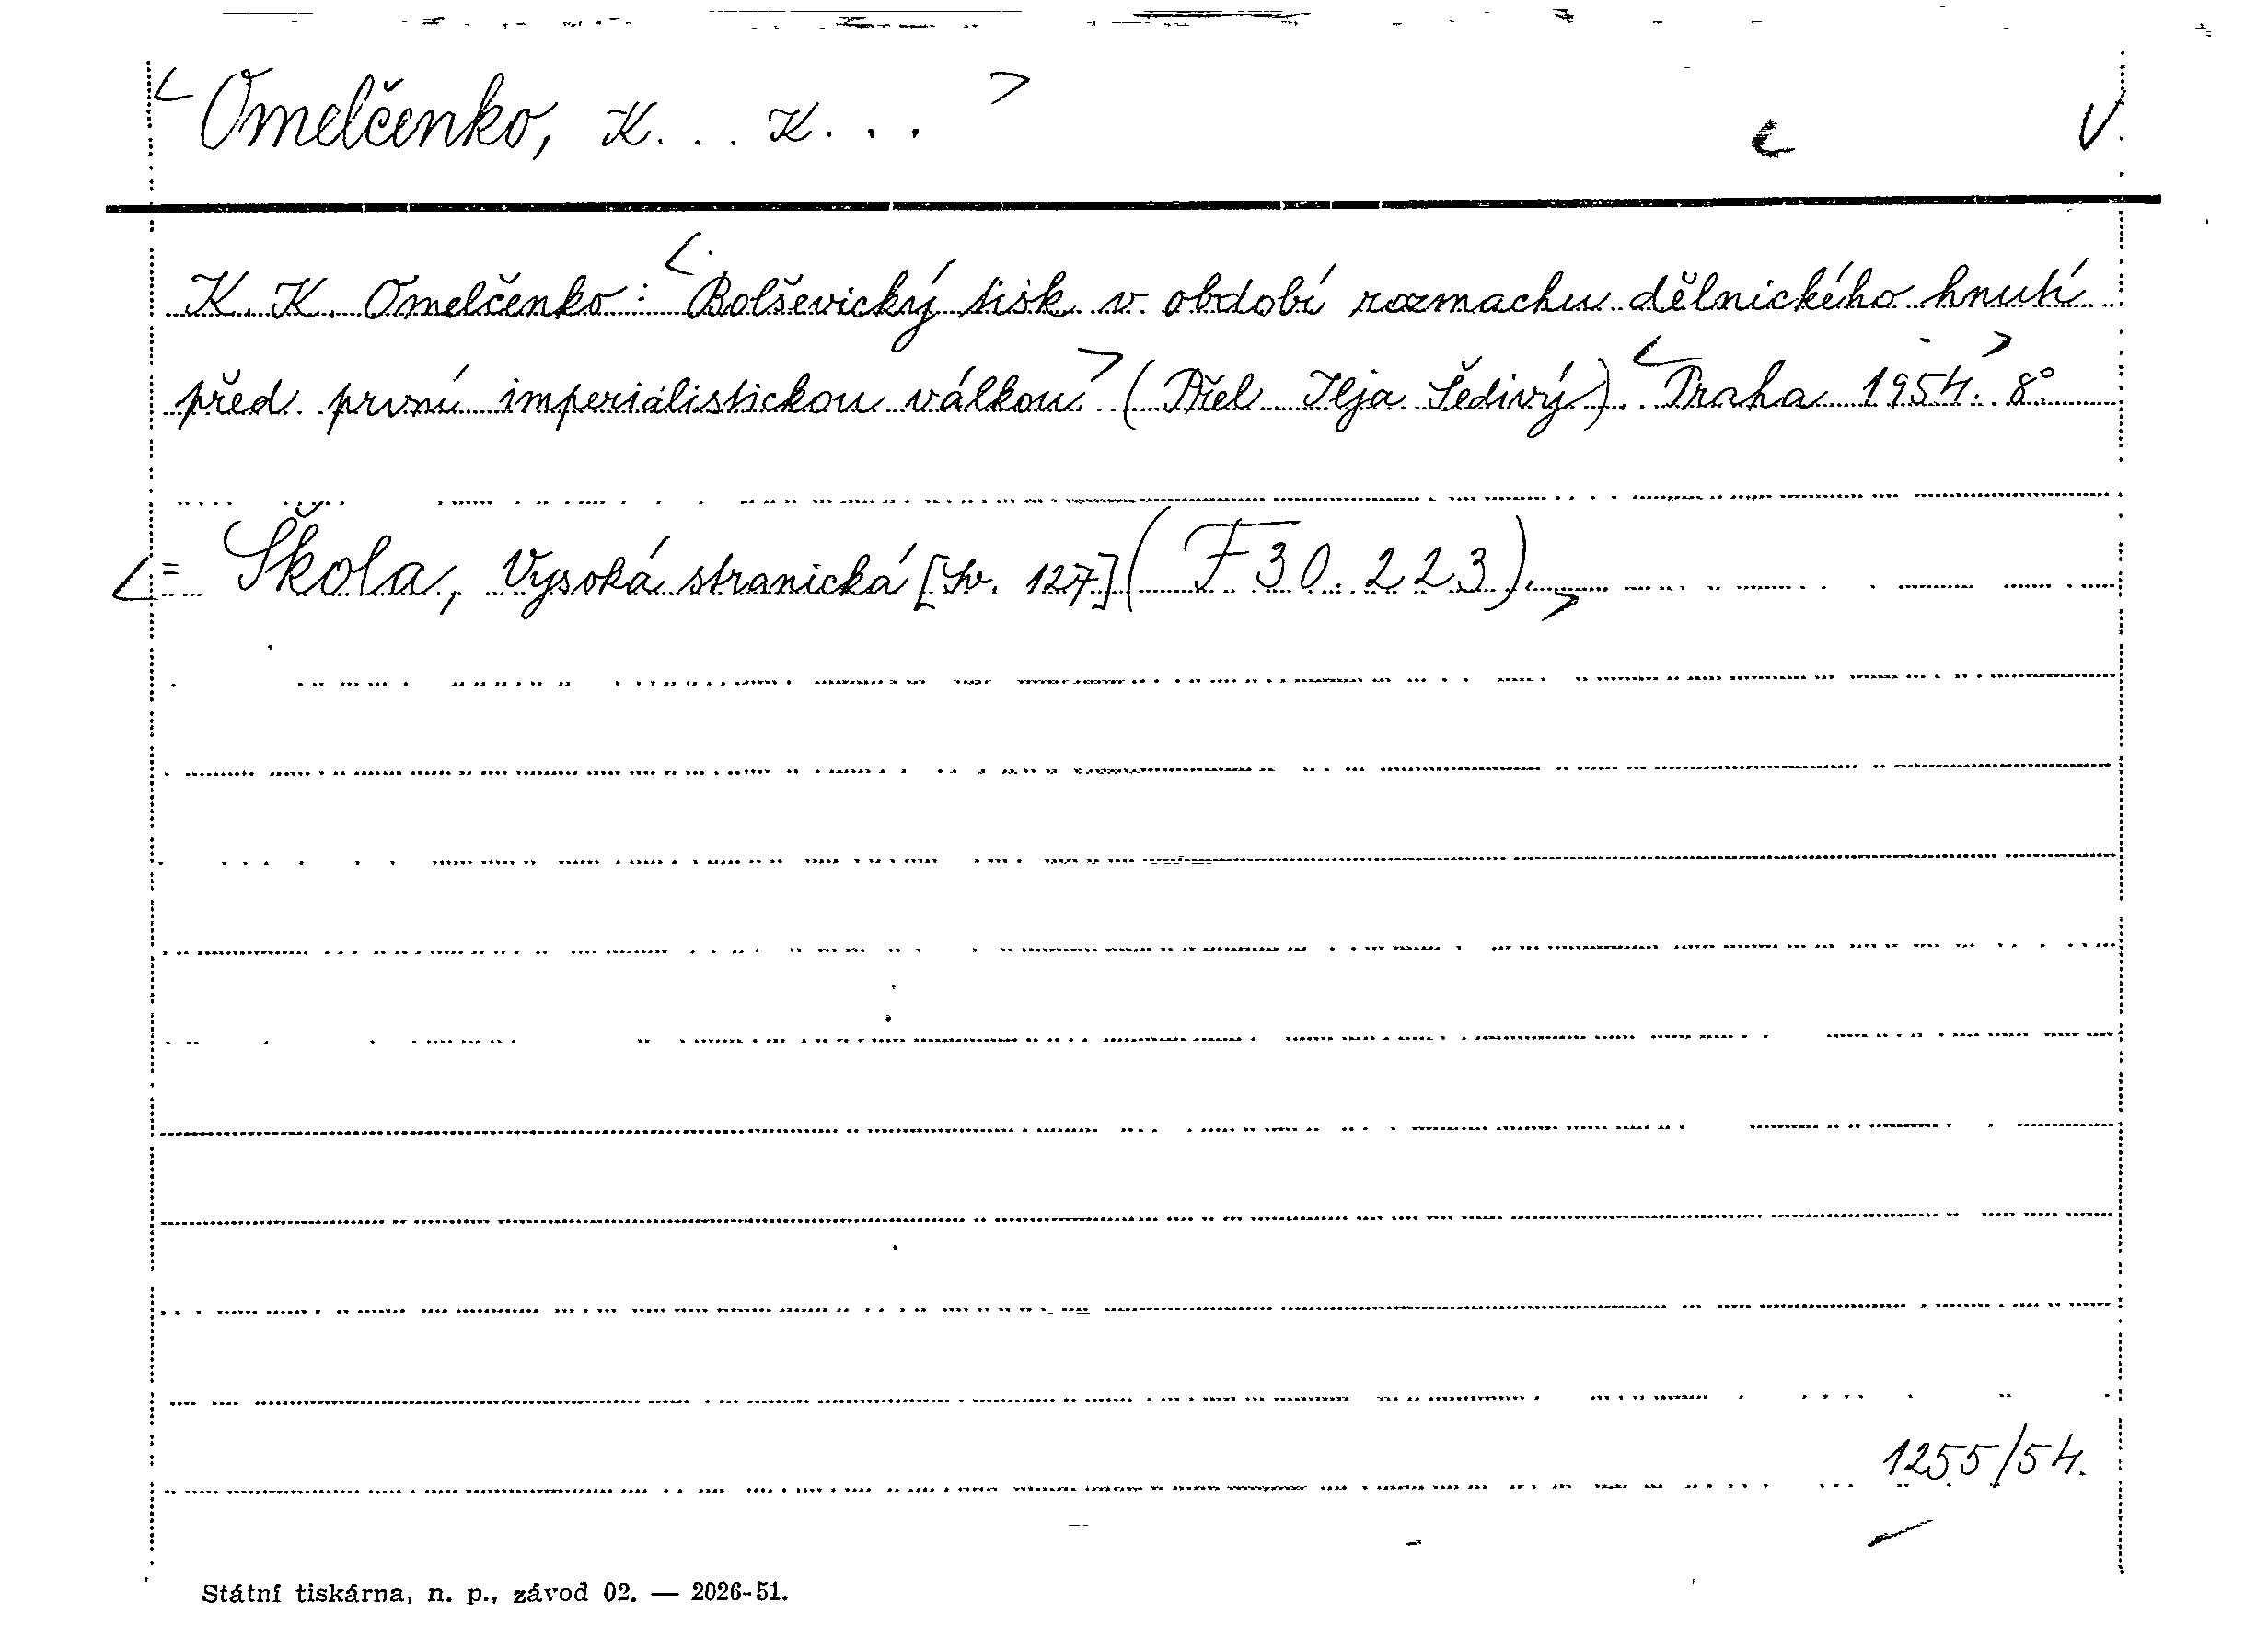 < Omelčenko, K... K... >
V.
K. K. Omelčenko: < Bolševický tisk v období rozmachu dělnického hnutí
před první imperialistickou válkou. > (Přel. Ilja Šedivý). < Praha 1954. > 8°
< = Škola, Vysoká stranická [Sv. 127] (F 30.223). >
1255/54.
Státní tiskárna, n. p., závod 02. — 2026-51.